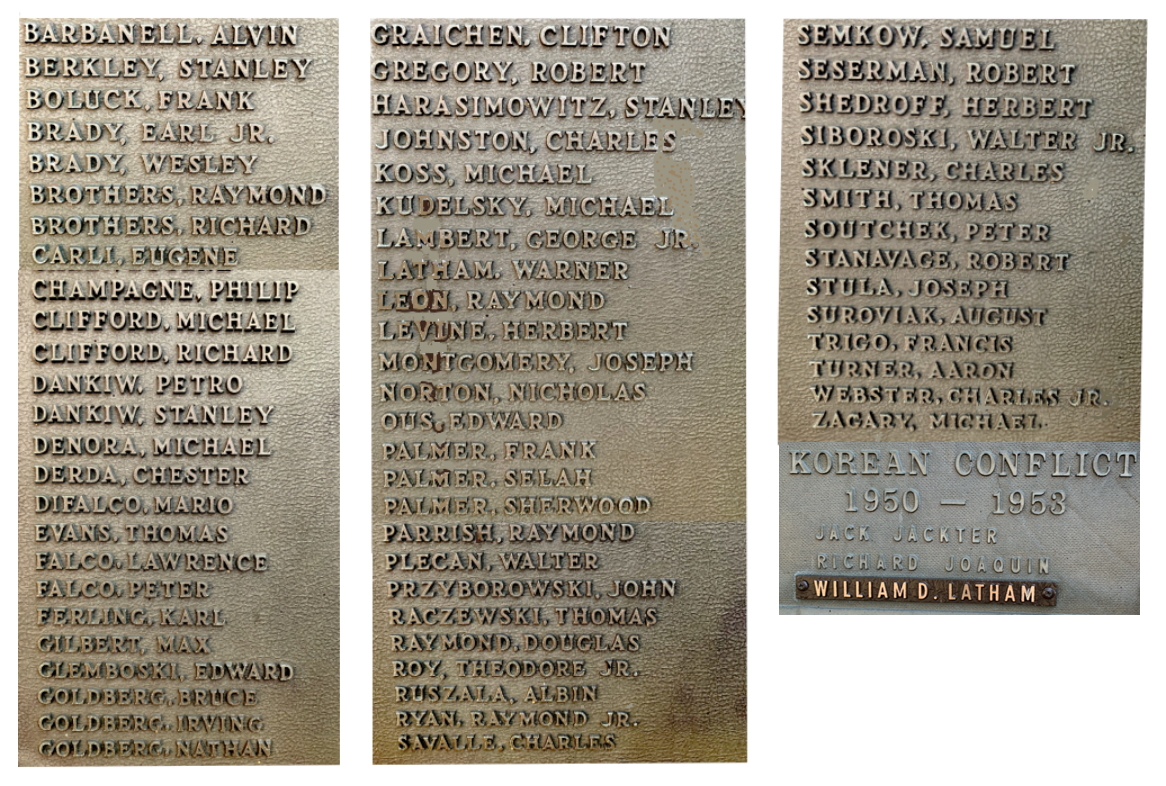 BARBANELL, ALVIN
BERKLEY, STANLEY
BOLUCK, FRANK
BRADY, EARL JR.
BRADY, WESLEY
BROTHERS, RAYMOND
BROTHERS, RICHARD
CARLI, EUGENE
CHAMPAGNE, PHILIP
CLIFFORD, MICHAEL
CLIFFORD, RICHARD
DANKIW, PETRO
DANKIW, STANLEY
DENORA, MICHAEL
DERDA, CHESTER
DIFALCO, MARIO
EVANS, THOMAS
FALCO, LAWRENCE
FALCO, PETER
FERLING, KARL
GILBERT, MAX
GLEMBOSKI, EDWARD
GOLDBERG, BRUCE
GOLDBERG, IRVING
GOLDBERG, NATHAN
GRAICHEN, CLIFTON
GREGORY, ROBERT
HARASIMOWITZ, STANLEY
JOHNSTON, CHARLES
KOSS, MICHAEL
KUDELSKY, MICHAEL
LAMBERT, GEORGE JR.
LATHAM, WARNER
LEON, RAYMOND
LEVINE, HERBERT
MONTGOMERY, JOSEPH
NORTON, NICHOLAS
OUS, EDWARD
PALMER, FRANK
PALMER, SELAH
PALMER, SHERWOOD
PARRISH, RAYMOND
PLECAN, WALTER
PRZYBOROWSKI, JOHN
RACZEWSKI, THOMAS
RAYMOND, DOUGLAS
ROY, THEODORE JR.
RUSZALA, ALBIN
RYAN, RAYMOND JR.
SAVALLE, CHARLES
SEMKOW, SAMUEL
SESERMAN, ROBERT
SHEDROFF, HERBERT
SIBOROSKI, WALTER JR.
SKLENER, CHARLES
SMITH, THOMAS
SOUTCHEK, PETER
STANAVAGE, ROBERT
STULA, JOSEPH
SUROVIAK, AUGUST
TRIGO, FRANCIS
TURNER, AARON
WEBSTER, CHARLES JR.
ZAGARY, MICHAEL
KOREAN CONFLICT
1950 — 1953
JACK JACKTER
RICHARD JOAQUIN
WILLIAM D. LATHAM